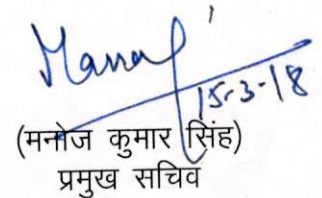 Manoj
15-3-18
(मनोज कुमार सिंह)
प्रमुख सचिव